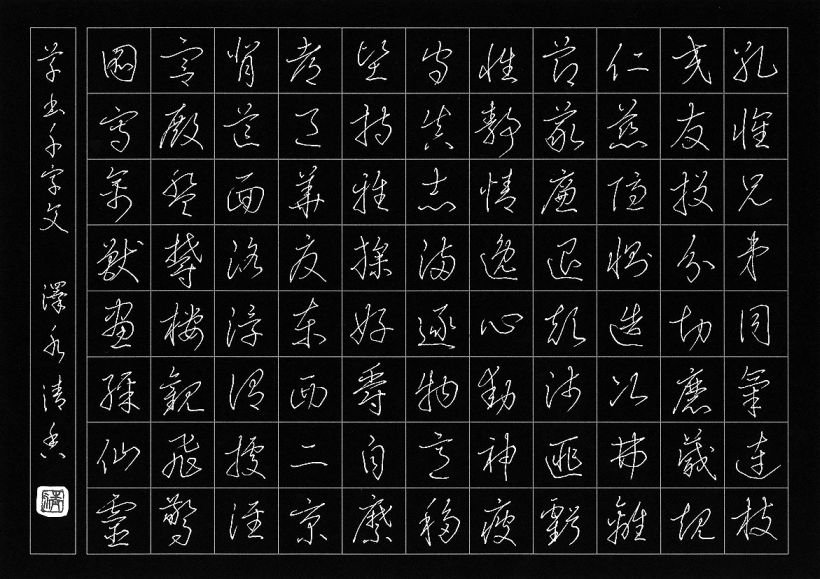 孔懷兄弟同氣連枝
交友投分切磨箴規
仁慈隱惻造次弗離
節義廉退顛沛匪虧
性靜情逸心動神疲
守真志滿逐物意移
堅持雅操好爵自縻
都邑華夏東西二京
背芒面洛浮渭據涇
宮殿盤鬱樓觀飛驚
圖寫禽獸畫綵仙靈
草書千字文 澤水清